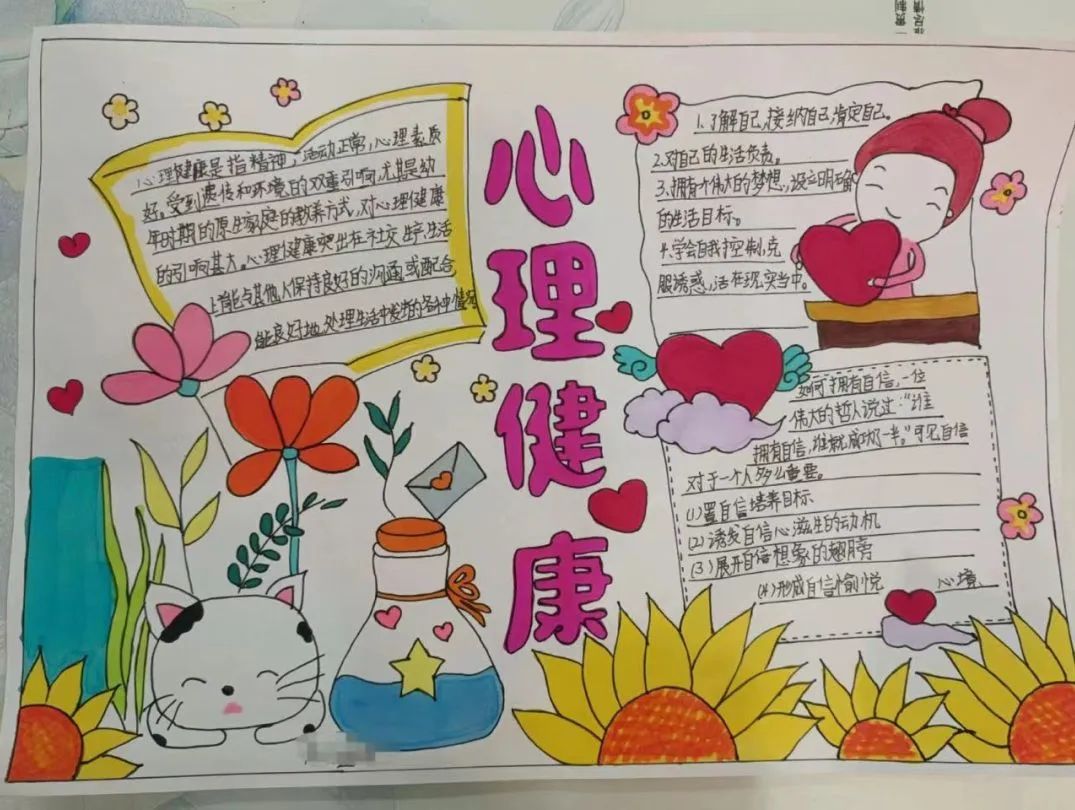 心理健康
心理健康是指精神，活动正常，心理素质
好。受到遗传和环境的双重引响，尤其是幼
年时期的原生家庭的教养方式，对心理健康
的引响甚大。心理健康突出在社交生产，生活
上能与其他人保持良好的沟通或配合
能良好地处理生活中发生的各种情况
1、了解自己，接纳自己，肯定自己。
2.对自己的生活负责。
3、拥有个伟大的梦想，设立明确
的生活目标。
4、学会自我控制，克
服诱惑，活在现实当中。
如何拥有自信，一位
伟大的哲人说过：“谁
拥有自信，谁就成功了一半。”可见自信
对于一个人多么重要。
(1)置自信培养目标
(2)诱发自信心滋生的动机
(3)展开自信想象的翅膀
(4)形成自信愉悦 心境、